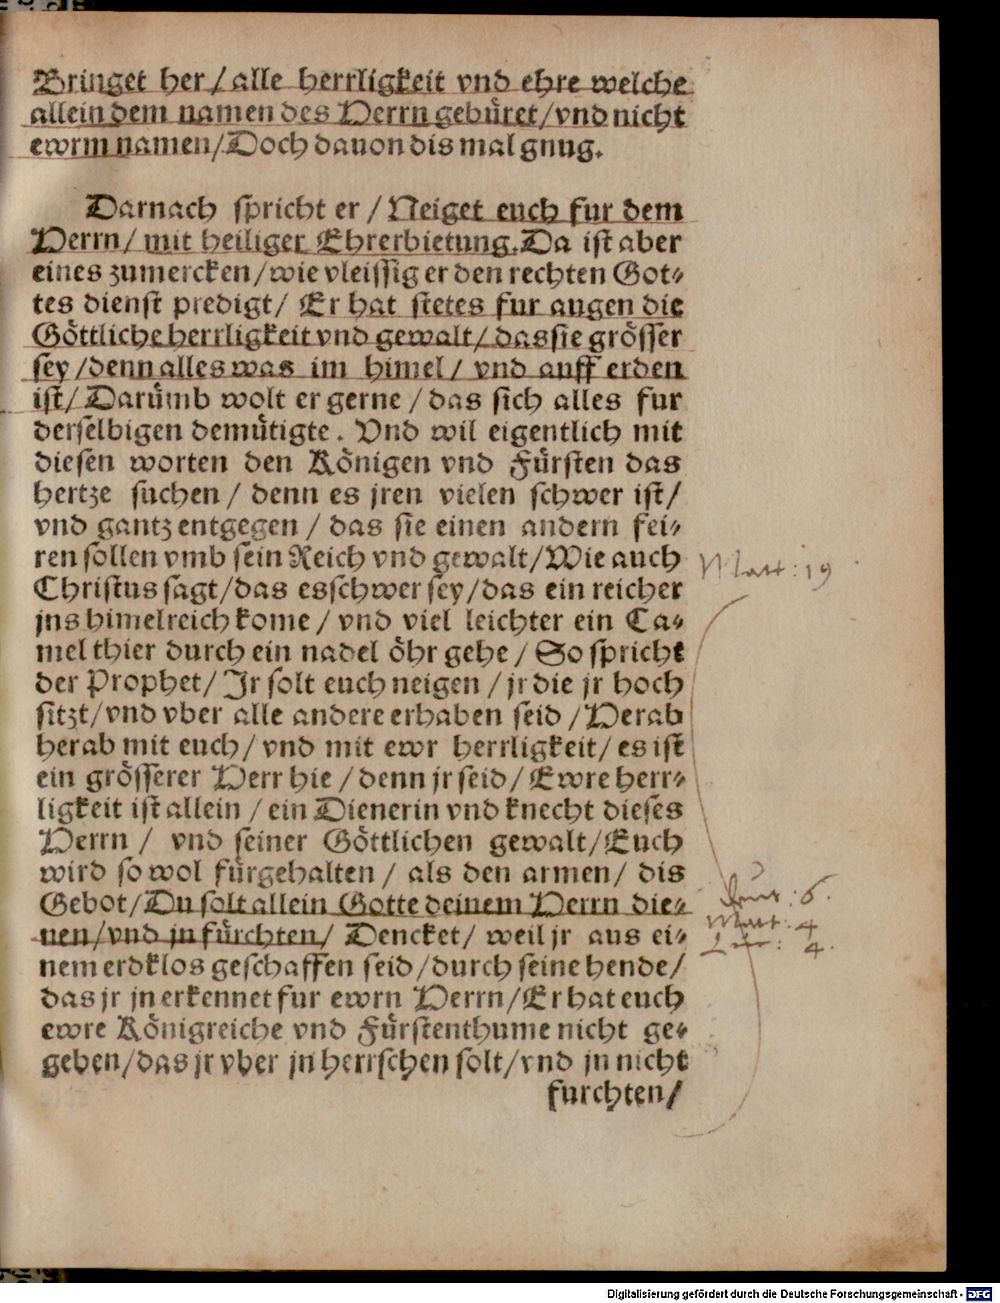 Bringet her / alle herrligkeit vnd ehre welche
allein dem namen des Herrn gebüret / vnd nicht
ewrm namen / Doch dauon dis mal gnug.
Darnach spricht er / Neiget euch fur dem
Herrn / mit heiliger Ehrerbietung. Da ist aber
eines zumercken / wie vleissig er den rechten Got⸗
tes dienst predigt / Er hat stetes fur augen die
Göttliche herrligkeit vnd gewalt / das sie grösser
sey / denn alles was im himel / vnd auff erden
ist / Darümb wolt er gerne / das sich alles fur
derselbigen demütigte. Vnd wil eigentlich mit
diesen worten den Königen vnd Fürsten das
hertze suchen / denn es jren vielen schwer ist /
vnd gantz entgegen / das sie einen andern fei⸗
ren sollen vmb sein Reich vnd gewalt / Wie auch
Christus sagt / das es schwer sey / das ein reicher
jns himelreich kome / vnd viel leichter ein Ca⸗
mel thier durch ein nadel öhr gehe / So spricht
der Prophet / Jr solt euch neigen / jr die jr hoch
sitzt / vnd vber alle andere erhaben seid / Herab
herab mit euch / vnd mit ewr herrligkeit / es ist
ein grösserer Herr hie / denn jr seid / Ewre herr⸗
ligkeit ist allein / ein Dienerin vnd knecht dieses
Herrn / vnd seiner Göttlichen gewalt / Euch
wird so wol fürgehalten / als den armen / dis
Gebot / Du solt allein Gotte deinem Herrn die⸗
nen / vnd jn fürchten / Dencket / weil jr aus ei⸗
nem erdklos geschaffen seid / durch seine hende /
das jr jn erkennet fur ewrn Herrn / Er hat euch
ewre Königreiche vnd Fürstenthume nicht ge⸗
geben / das jr vber jn herrschen solt / vnd jn nicht
furchten /
Matt: 19
Deut: 6.
Matt: 4
Luc: 4.
Digitalisierung gefördert durch die Deutsche Forschungsgemeinschaft - DFG